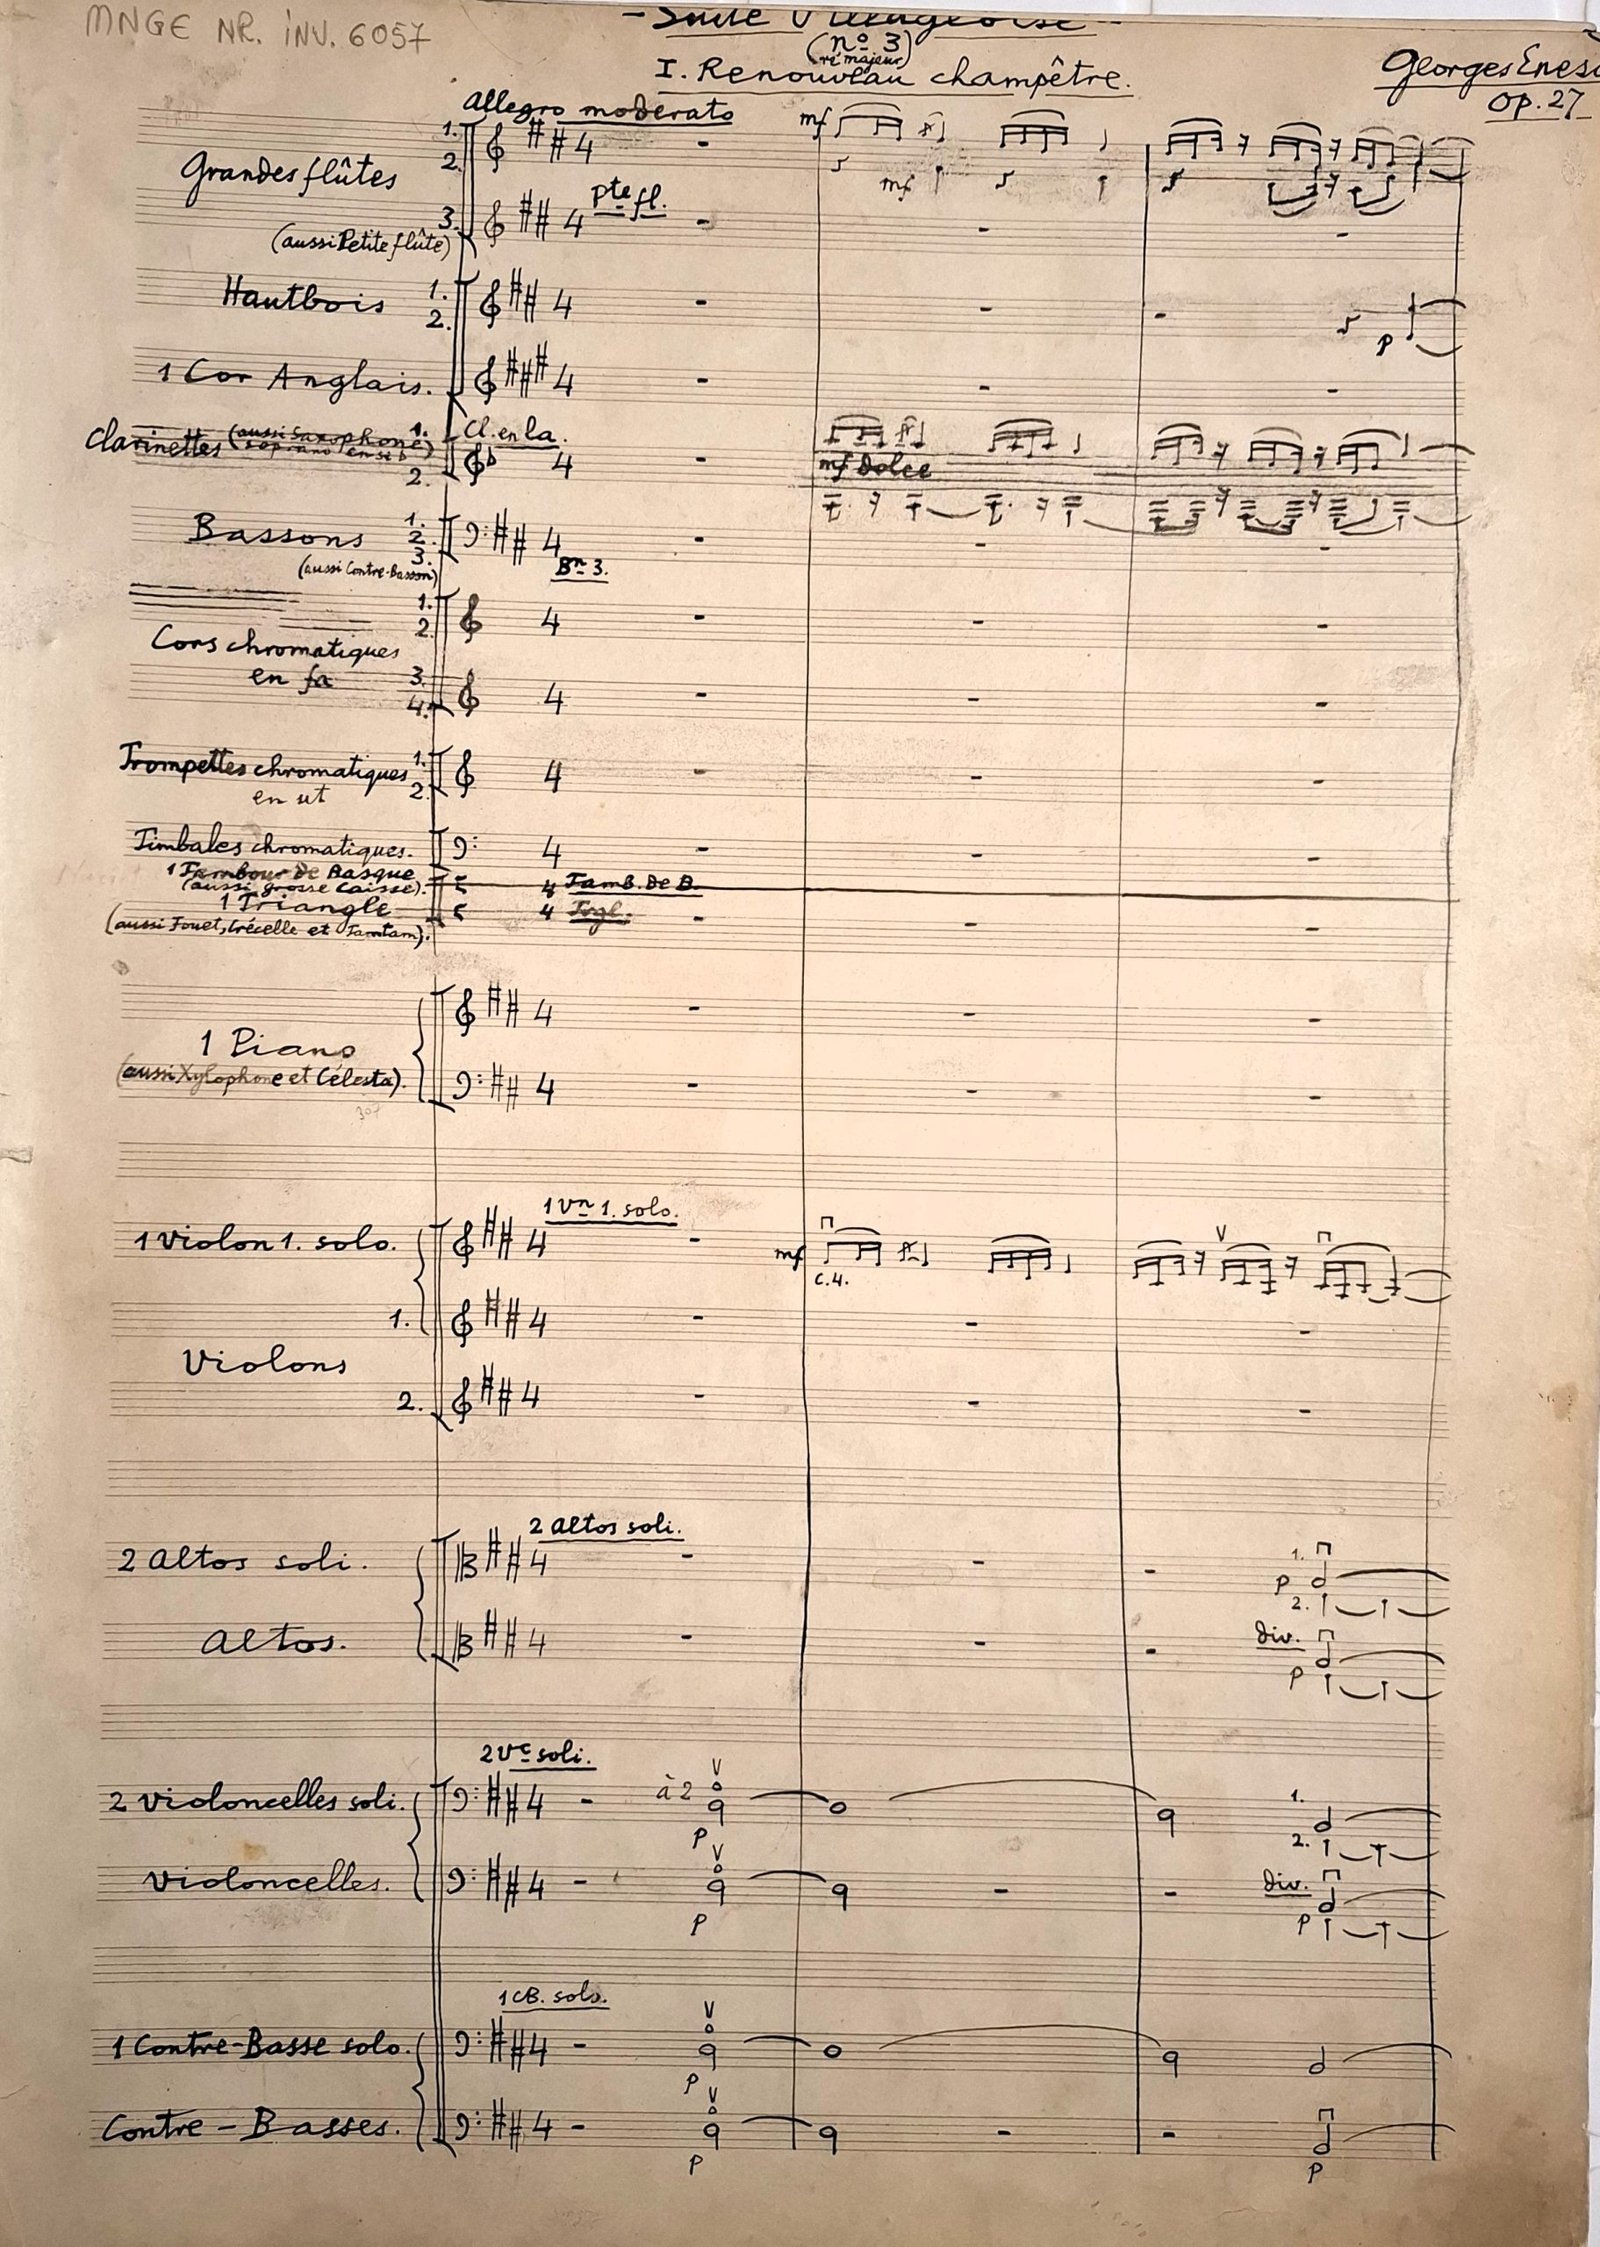 MNGE NR. INV. 6057
- Suite Villageoise -
(nº 3)
ré majeur
I. Renouveau champêtre.
Georges Enesc
Op. 27
Allegro moderato
Grandes flûtes
1.
2.
mf
mf
3.
(aussi Petite flûte)
Pte fl.
Hautbois
1.
2.
p
1 Cor Anglais.
Clarinettes (aussi Saxophone
soprano en si b)
1.
2.
Cl. en la.
mf dolce
Bassons
1.
2.
3.
(aussi Contre-Basson)
Bn 3.
Cors chromatiques
en fa
1.
2.
3.
4.
Trompettes chromatiques
en ut
1.
2.
Timbales chromatiques.
1 Tambour de Basque
(aussi grosse Caisse).
Tamb. de B.
1 Triangle
(aussi Fouet, Crécelle et Tamtam).
Trgl.
1 Piano
(aussi Xylophone et Célesta).
307
1 Violon 1. solo.
1 Vn 1. solo.
mf
c.4.
Violons
1.
2.
2 Altos soli.
2 Altos soli.
1.
p
2.
Altos.
div.
p
2 Violoncelles soli.
2 Vc soli.
à 2
p
1.
2.
Violoncelles.
p
div.
p
1 Contre-Basse solo.
1 CB. solo.
p
Contre-Basses.
p
p